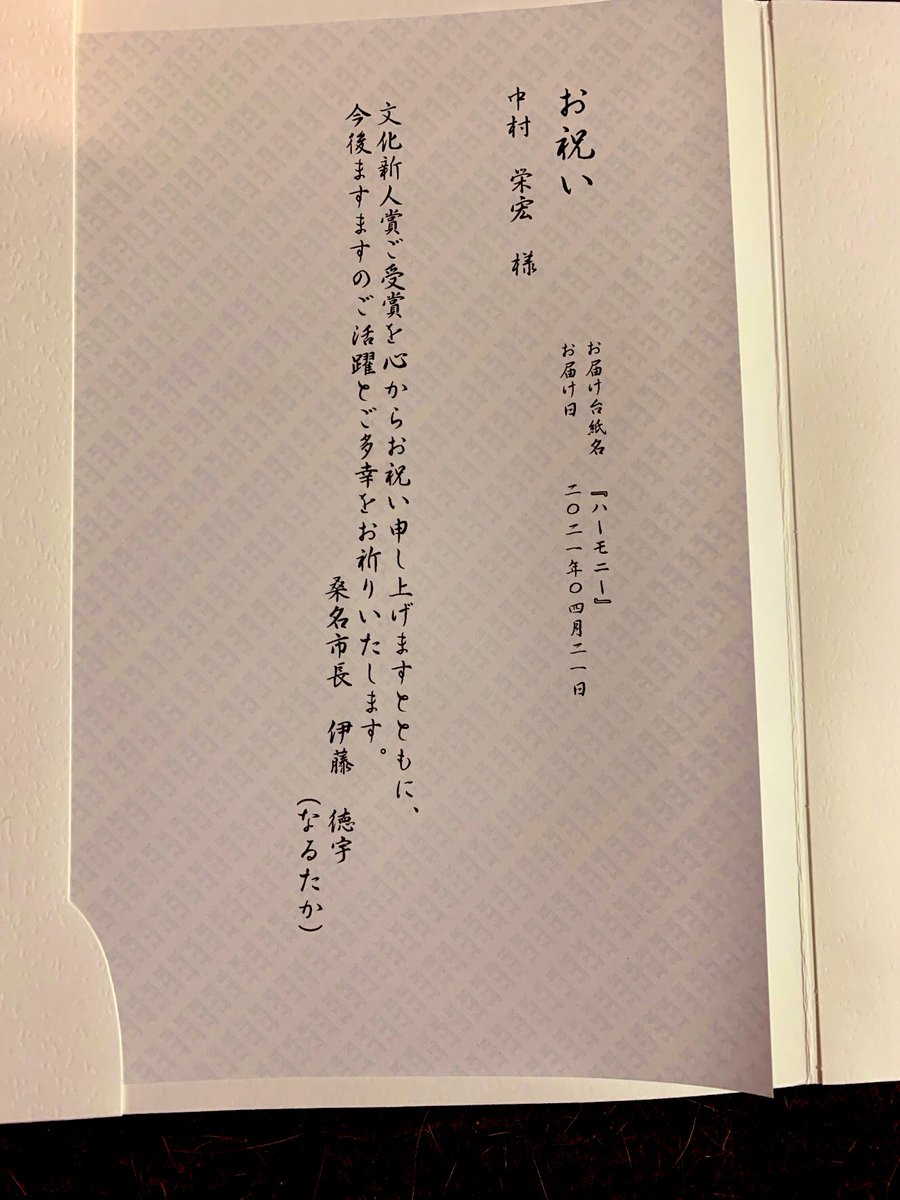 お祝い
中村 栄宏 様
お届け台紙名 『ハーモニー』
お届け日 二〇二一年〇四月二一日
文化新人賞ご受賞を心からお祝い申し上げますとともに、
今後ますますのご活躍とご多幸をお祈りいたします。
桑名市長 伊藤 徳宇
(なるたか)